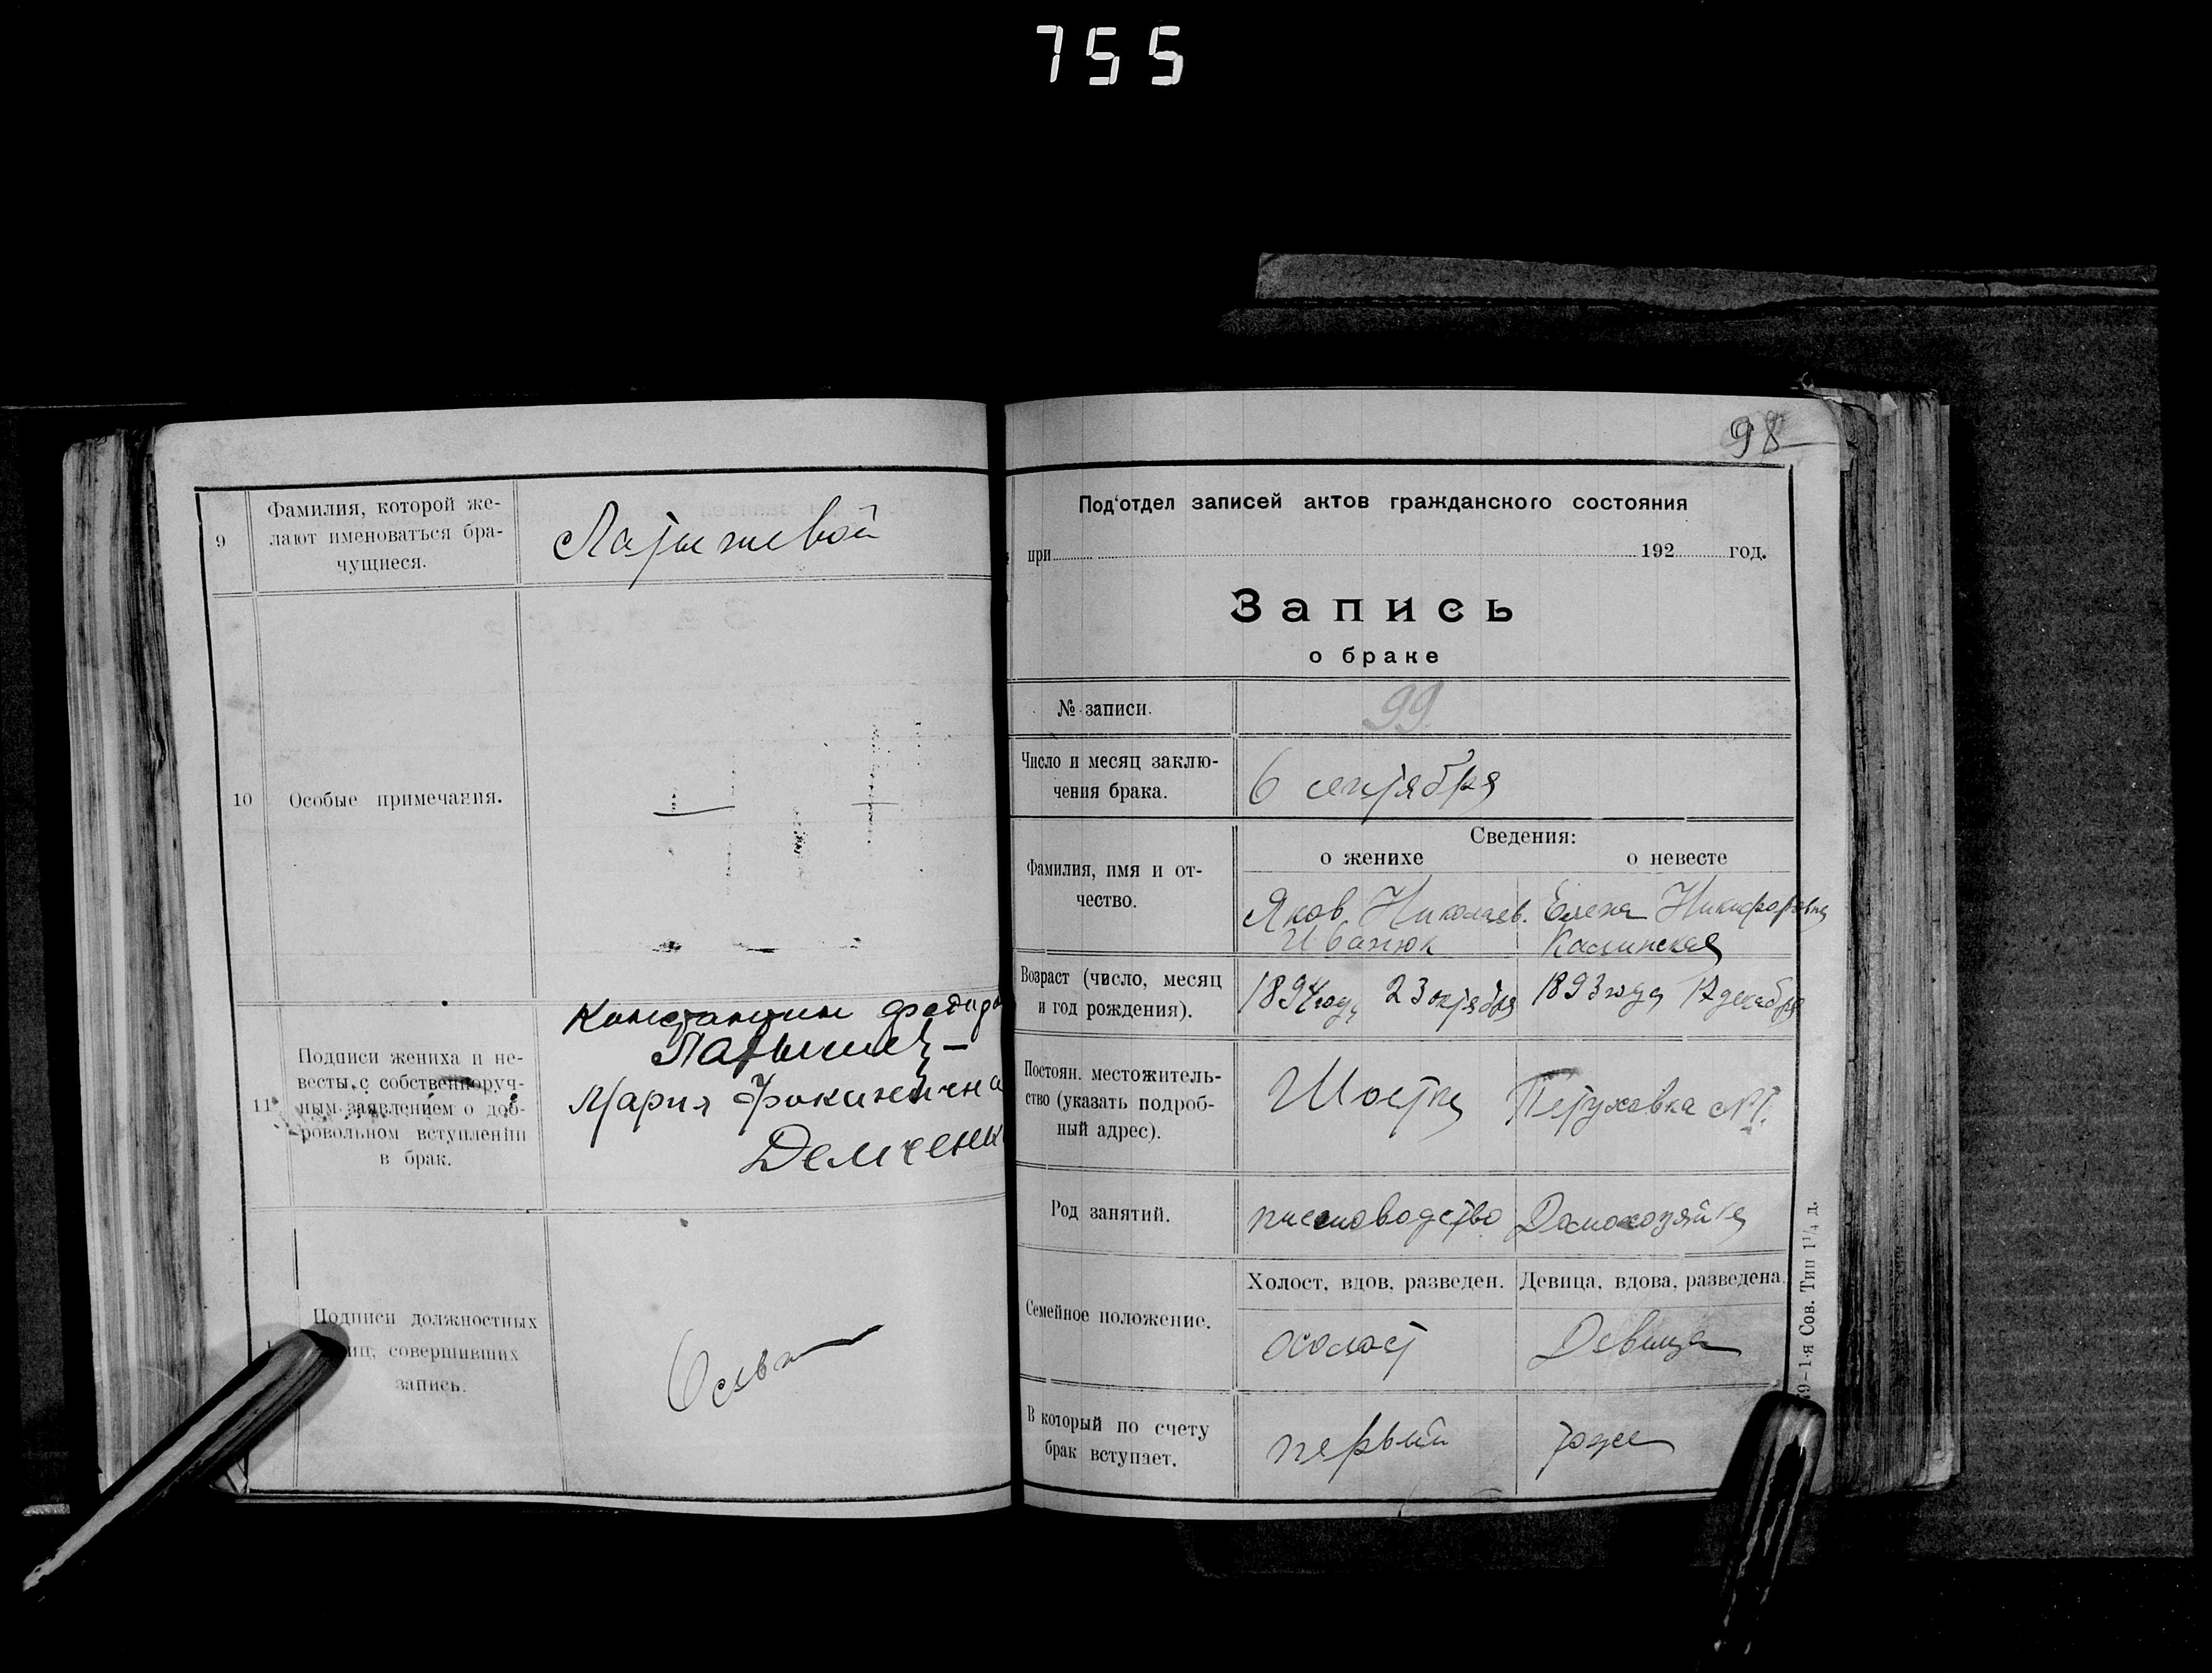 755
9
Фамилия, которой же-
лают именоваться бра-
чущиеся.
Латышевой
10
Особые примечания.
11
Подписи жениха и не-
весты, с собственноруч-
ным заявлением о доб-
ровольном вступлении
в брак.
Константин
Латышев
Мария
Демченк
Подписи должностных
лиц, совершивших
запись.
98
Под'отдел записей актов гражданского состояния
при 192 год.
Запись
о браке
№ записи.
99
Число и месяц заклю-
чения брака.
6 сентября
Фамилия, имя и от-
чество.
Сведения:
о женихе
о невесте
Яков Николаев.
Иванюк
Елена Никифоровна
Калинская
Возраст (число, месяц
и год рождения).
1894 году 23 октября
1893 года 17 декабря
Постоян. местожитель-
ство (указать подроб-
ный адрес).
Шостка
Петуховка №1.
Род занятий.
письмоводство
Домохозяйка
Семейное положение.
Холост, вдов, разведен.
Девица, вдова, разведена.
холост
Девица
В который по счету
брак вступает.
первый
тоже
9-1-я Сов. Тип 1¹/₄ д.